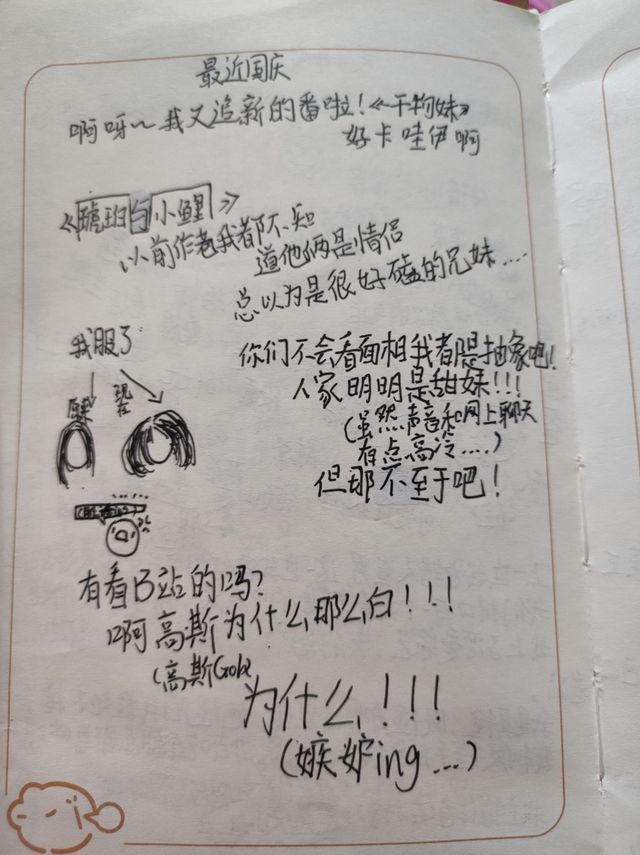 最近国庆
啊呀~我又追新的番啦！《干物妹》
好卡哇伊啊
《琥珀与小鲤》
以前作者我都不知
道他俩是情侣
总以为是很好磕的兄妹....
我服了
你们不会看面相我者限抽象吧！
人家明明是甜妹!!!
原来
现在
(虽然声音和网上聊天
有点高冷....)
但那不至于吧！
有看B站的吗?
啊高斯为什么那么白！！！
(高斯Gobe
为什么！！！
(嫉妒ing...)